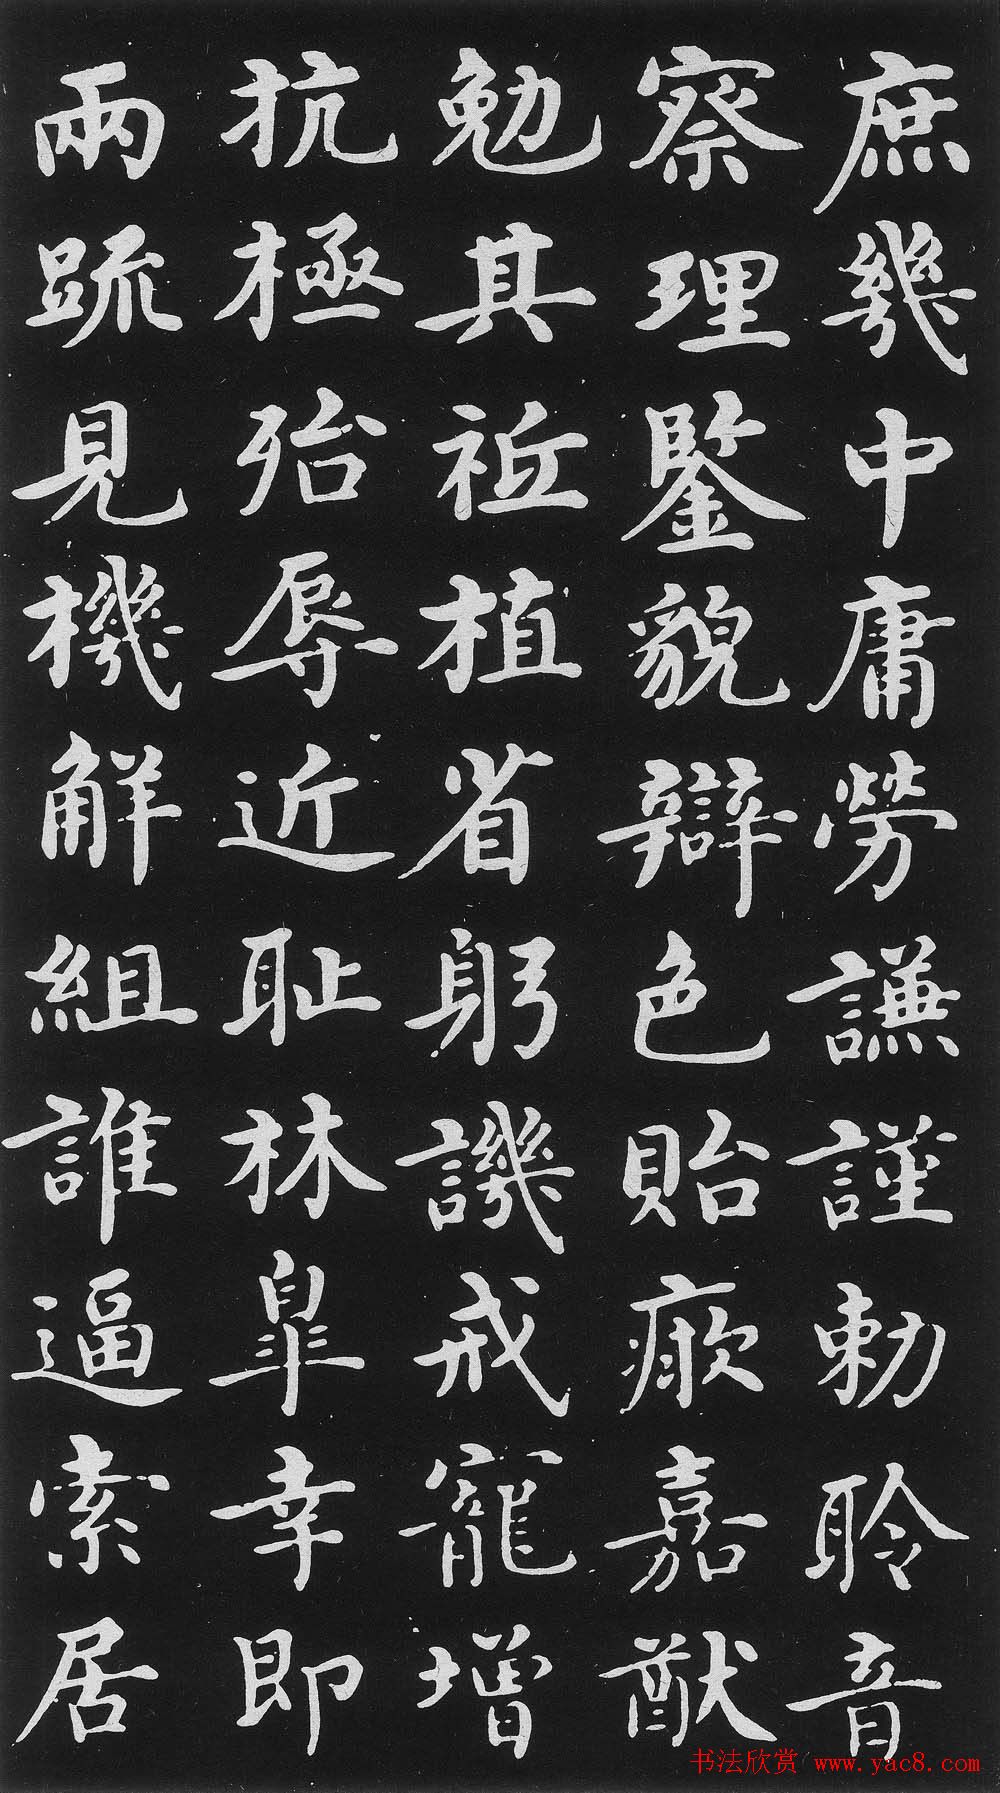 庶幾中庸勞謙謹勅聆音
察理鑒貌辯色貽厥嘉猷
勉其祗植省躬譏戒寵增
抗極殆辱近耻林皐幸即
兩疏見機解組誰逼索居
书法欣赏 www.yac8.com